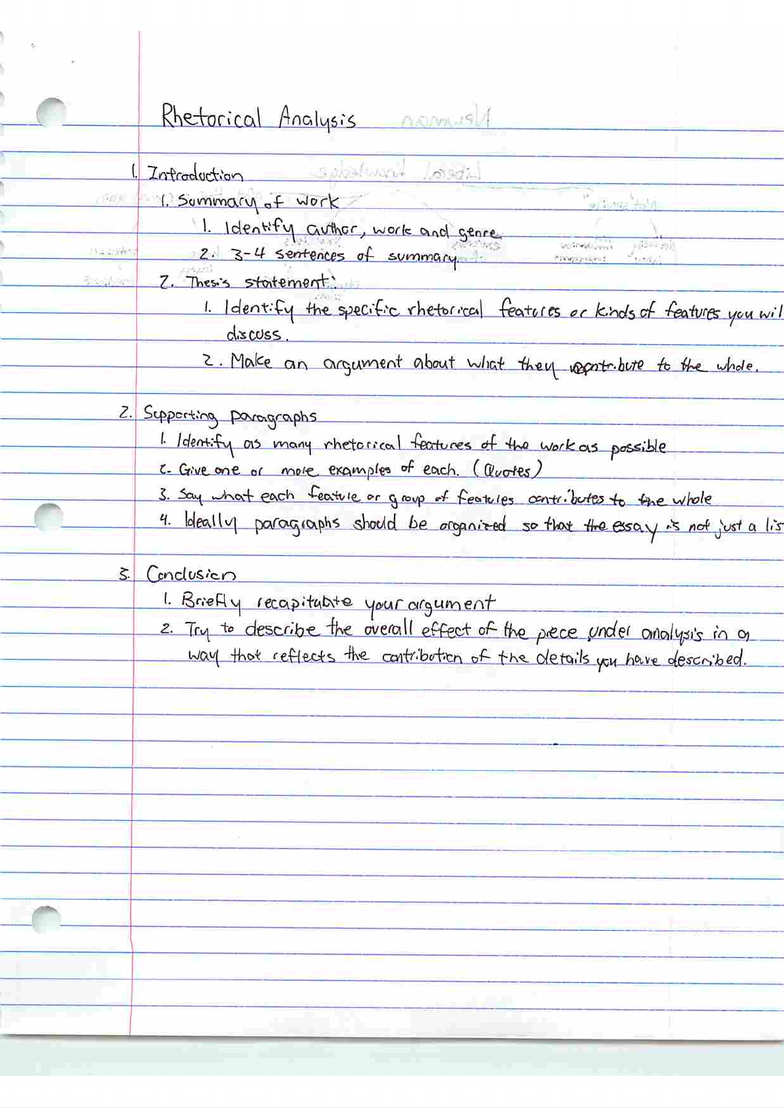 Rhetorical Analysis
1. Introduction
1. Summary of work
1. Identify author, work and genre
2. 3-4 sentences of summary
2. Thesis statement:
1. Identify the specific rhetorical features or kinds of features you wil
discuss.
2. Make an argument about what they contribute to the whole.
2. Supporting paragraphs
1. Identify as many rhetorical features of the work as possible
2. Give one or more examples of each. (Quotes)
3. Say what each feature or group of features contributes to the whole
4. Ideally paragraphs should be organized so that the essay is not just a lis
3. Conclusion
1. Briefly recapitulate your argument
2. Try to describe the overall effect of the piece under analysis in a
way that reflects the contribution of the details you have described.